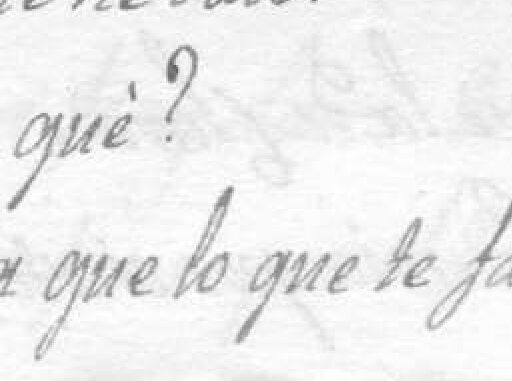 què?
que lo que te